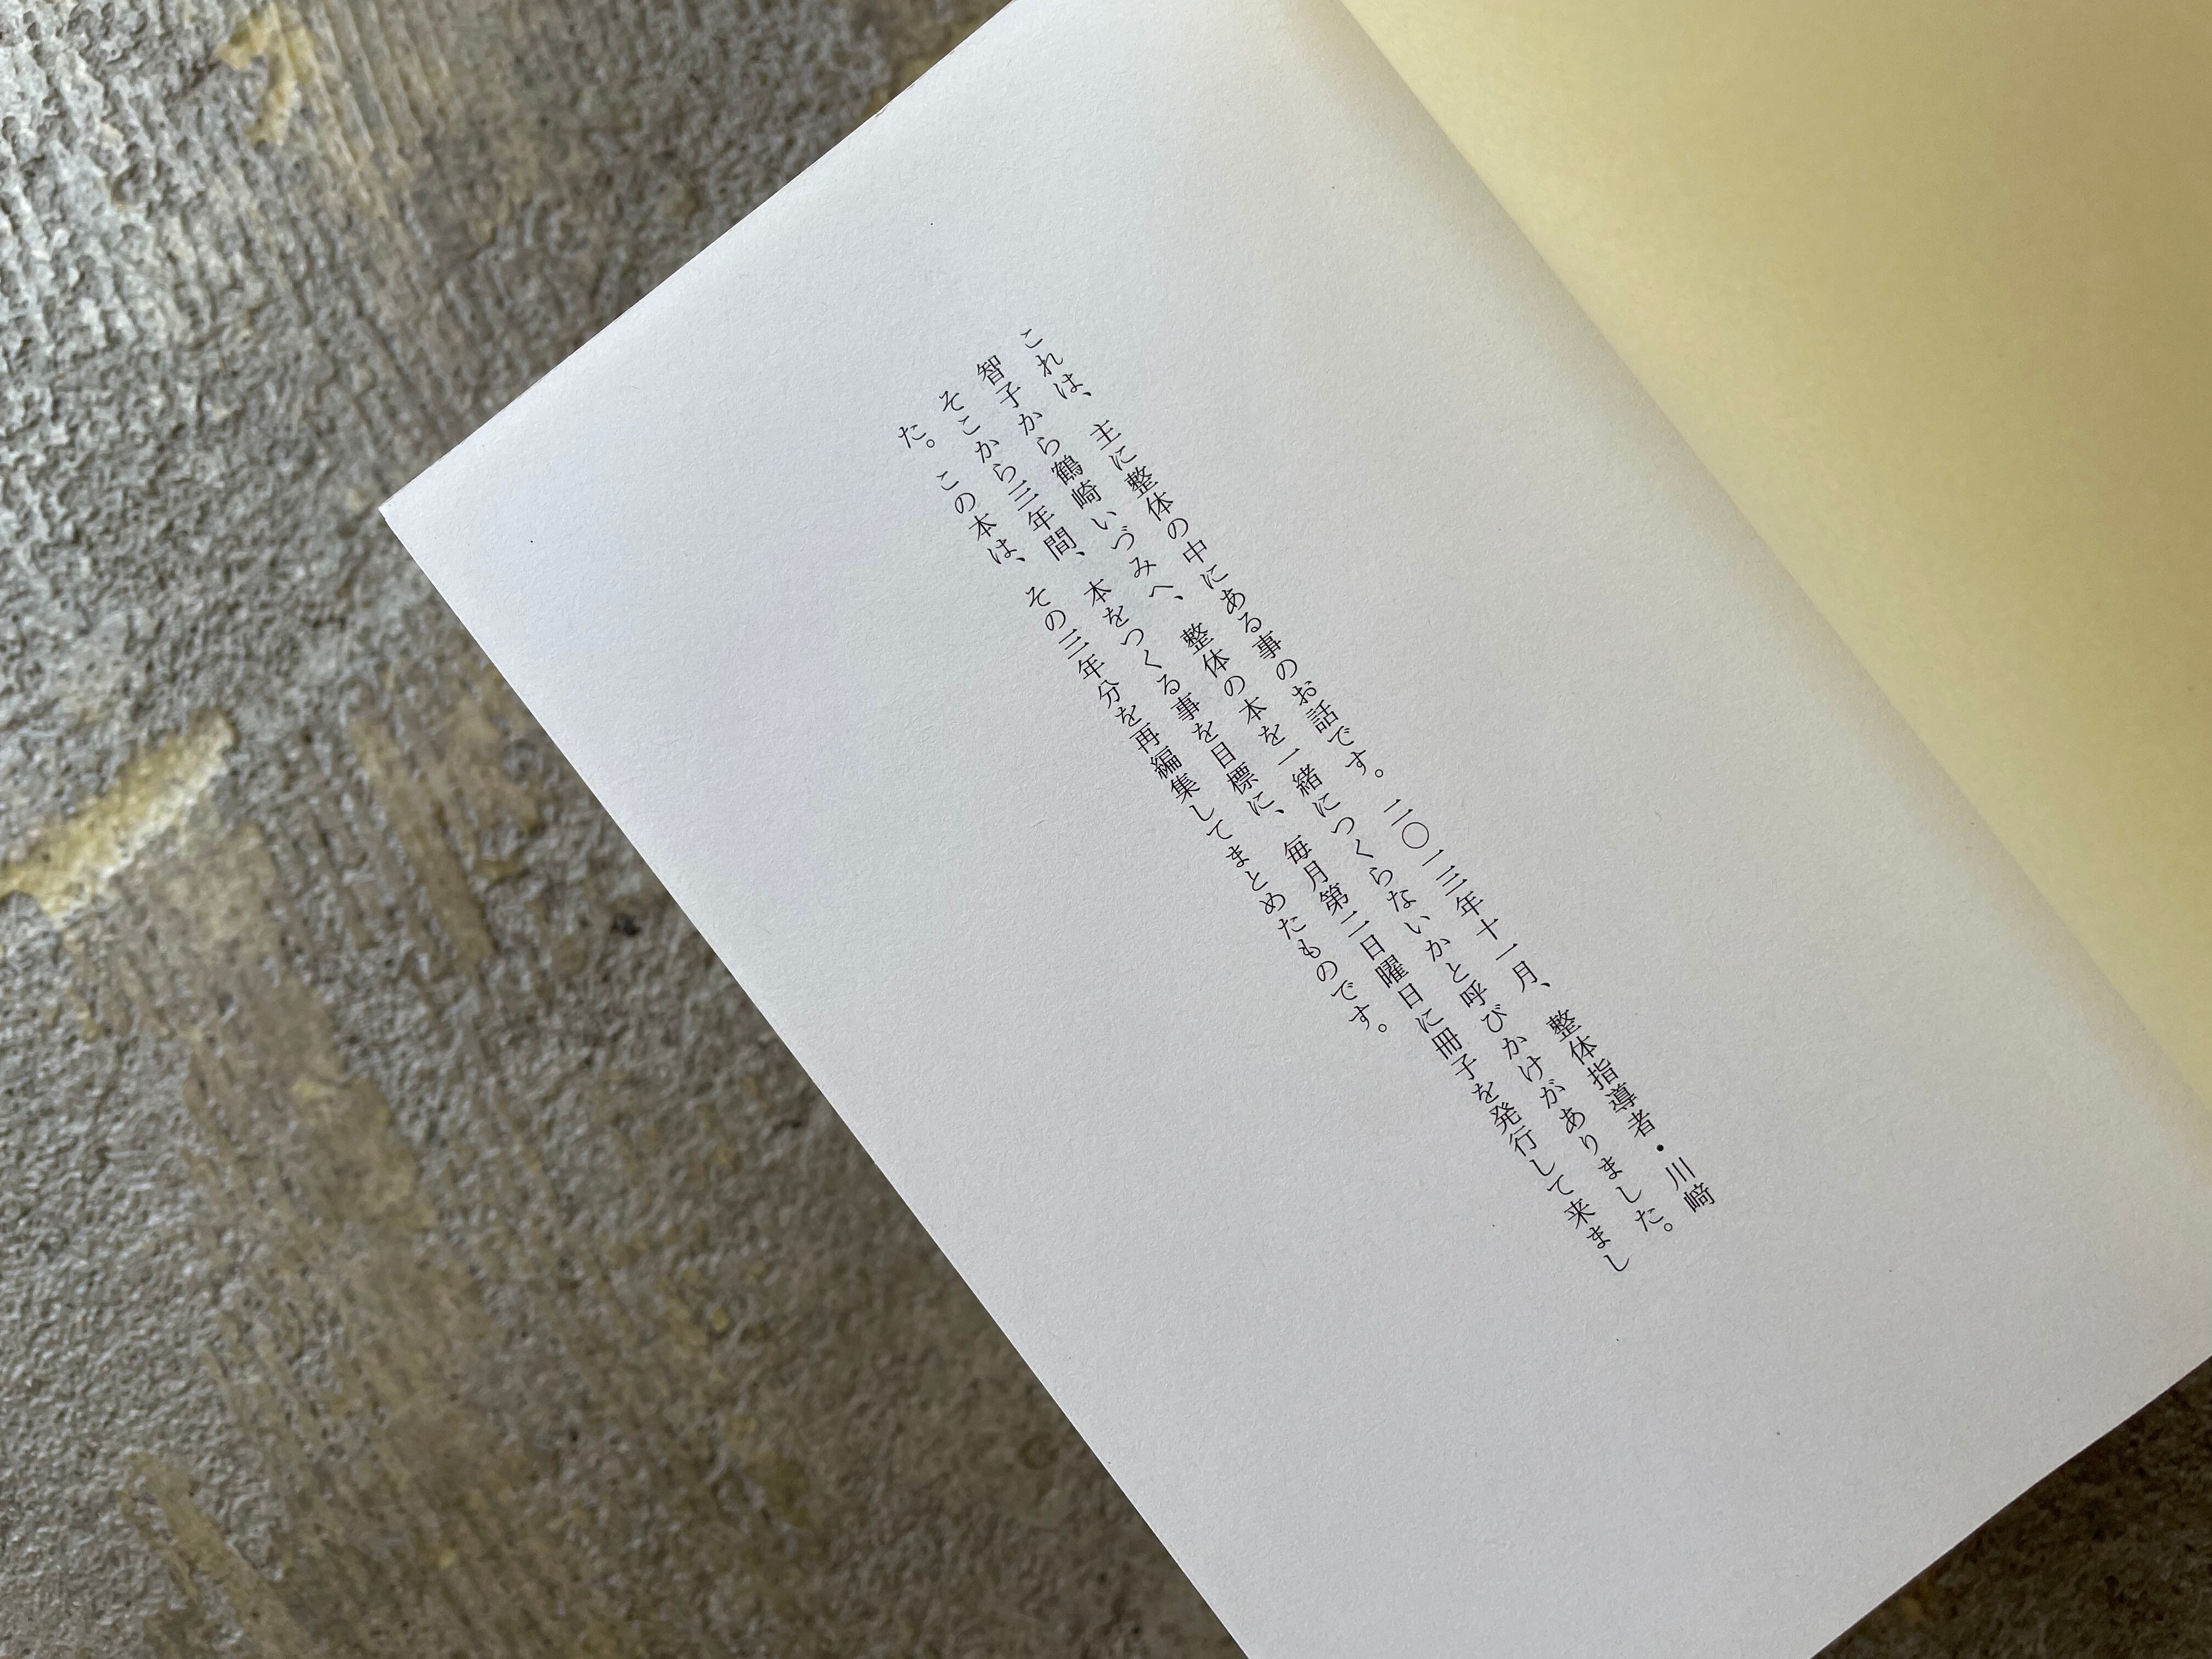 これは、主に整体の中にある事のお話です。二〇一三年十一月、整体指導者・川﨑
智子から鶴崎いづみへ、整体の本を一緒につくらないかと呼びかけがありました。
そこから三年間、本をつくる事を目標に、毎月第二日曜日に冊子を発行して来まし
た。この本は、その三年分を再編集してまとめたものです。